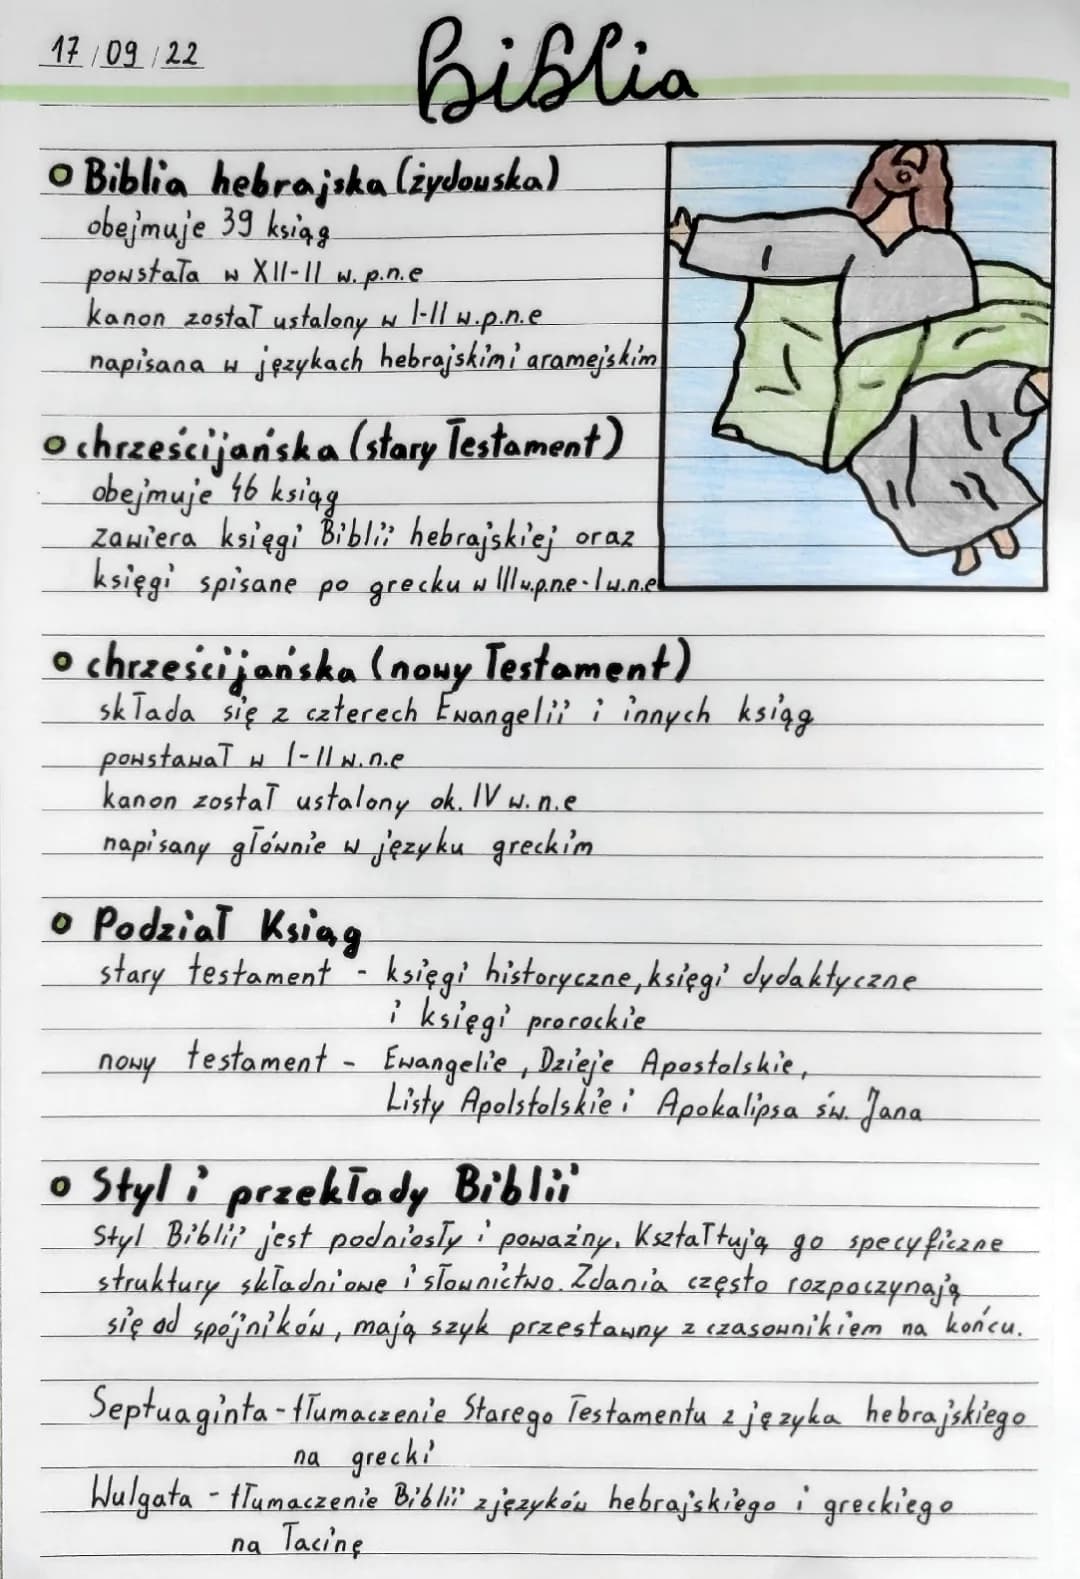 17/09/22
Biblia
Biblia hebrajska (żydowska)
obejmuje 39 ksiąg
powstała w XII-II w. p.n.e
kanon został ustalony w I-II w.p.n.e
napisana w językach hebrajskim i aramejskim
chrześcijańska (stary Testament)
obejmuje 46 ksiąg
zawiera księgi Biblii hebrajskiej oraz
księgi spisane po grecku w III w.p.n.e-I w.n.e
chrześcijańska (nowy Testament)
składa się z czterech Ewangelii i innych ksiąg
powstawał w I-II w.n.e
kanon został ustalony ok. IV w. n.e
napisany głównie w języku greckim
Podział Ksiąg
stary testament - księgi historyczne, księgi dydaktyczne
i księgi prorockie
nowy testament - Ewangelie, Dzieje Apostolskie,
Listy Apolstolskie i Apokalipsa św. Jana
Styl i przekłady Biblii
Styl Biblii jest podniosły i poważny. Kształtują go specyficzne
struktury składniowe i słownictwo. Zdania często rozpoczynają
się od spójników, mają szyk przestawny z czasownikiem na końcu.
Septuaginta - tłumaczenie Starego Testamentu z języka hebrajskiego
na grecki
Wulgata - tłumaczenie Biblii z języków hebrajskiego i greckiego
na łacinę